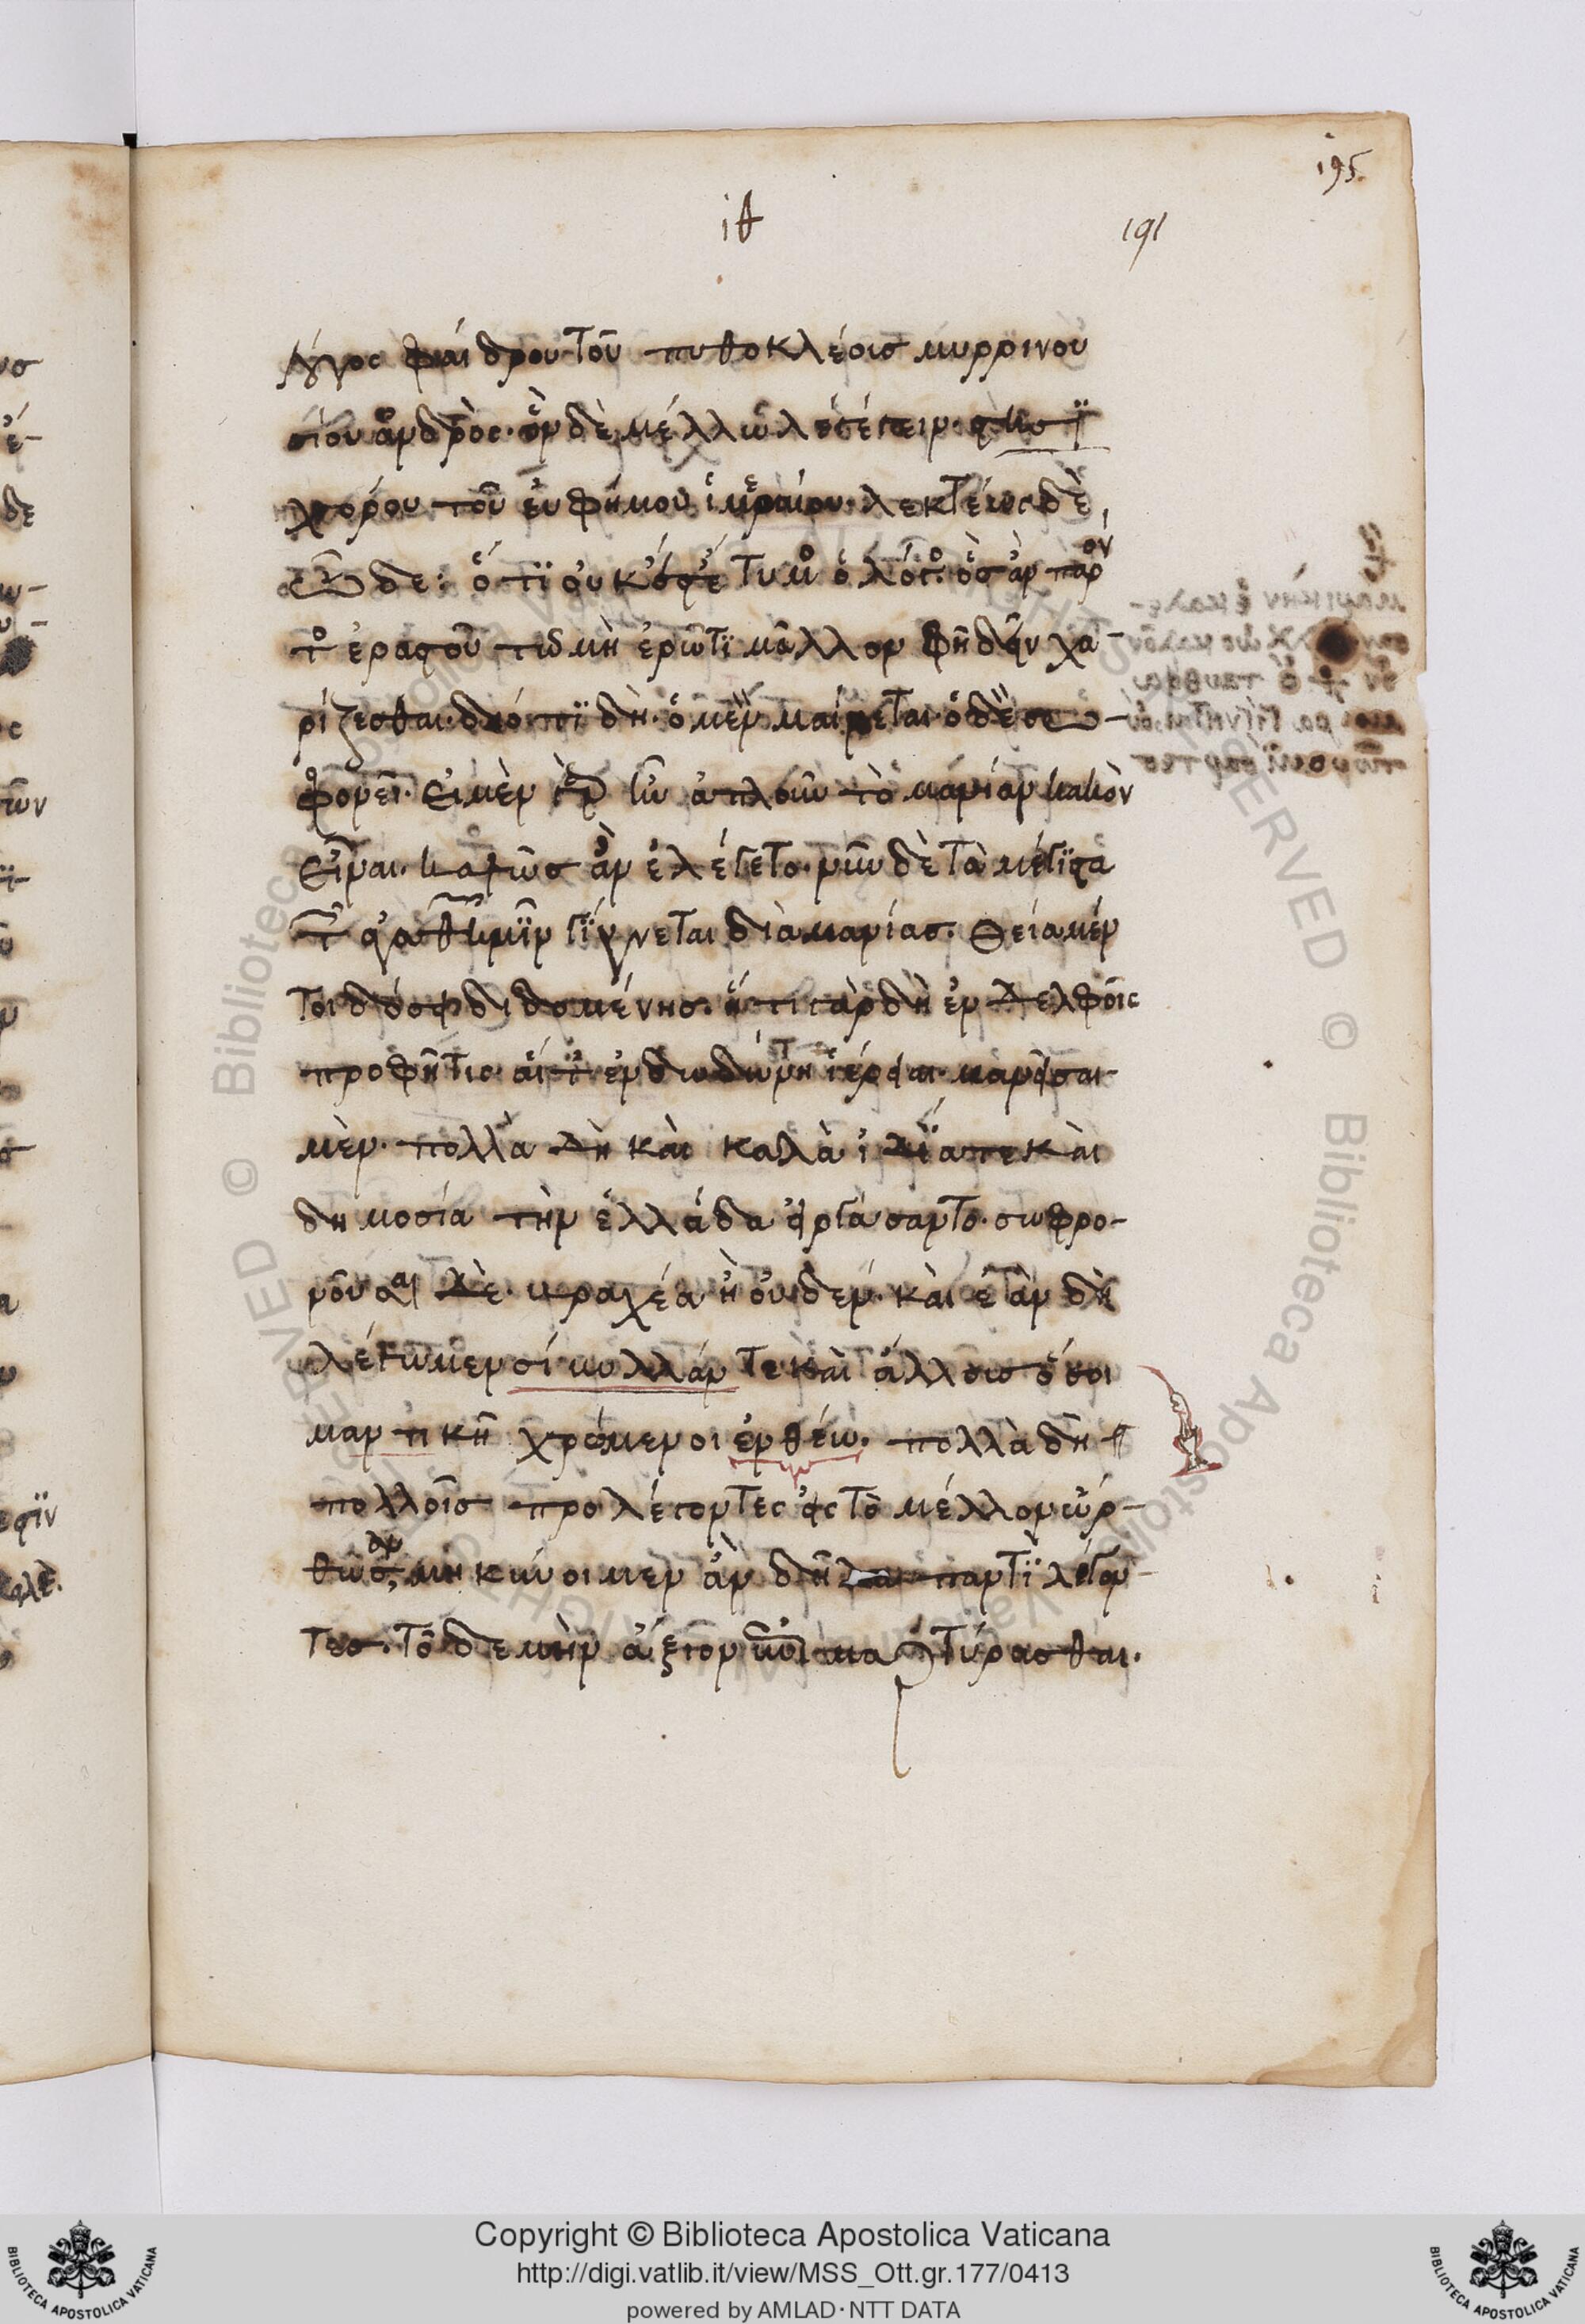 195.
ιθ
191
λόγος φαίδρου τοῦ πυθοκλέους μυρρινου
σίου ἀνδρὸς. ὃν δὲ μέλλω λέγειν. στη σι
χόρου τοῦ εὐφήμου ἱμεραίου. λεκτέος δὲ
ὧδε: ὅτι οὐκ ἔστ᾽ ἔτυμος ὁ λόγος. ὃς ἂν παρόν
τος ἐραστοῦ τῷ μὴ ἐρῶντι μᾶλλον φῆ δεῖν χα-
ρίζεσθαι. διότι δὴ. ὁ μὲν μαίνεται. ὁ δὲ σω-
φρονεῖ. εἰ μὲν γὰρ ἦν ἁπλοῦν τὸ μανίαν κακὸν
εἶναι. καλῶς ἂν ἐλέγετο. νῦν δὲ τὰ μέγιστα
τῶν ἀγαθῶν ἡμῖν γίγνεται διὰ μανίας. θεία μέν
τοι δόσει διδομένης. ἥ τε γὰρ δὴ ἐν δελφοῖς
προφῆτις. αἵ τ᾽ ἐν δωδώνη ἱέρειαι. μανεῖσαι
μὲν. πολλὰ δὴ καὶ καλὰ ἰδία τε καὶ
δημοσία τὴν ἑλλάδα εἰργάσαντο. σωφρο-
νοῦσαι δὲ. βραχέα ἢ οὐδέν. καὶ ἐὰν δὴ
λέγωμεν σίβυλλάν τε καὶ ἄλλους ὅσοι
μαντικῆ χρώμενοι ἐνθέω. πολλὰ δὴ
πολλοῖς προλέγοντες εἰς τὸ μέλλον ὤρ-
θωσαν, μηκύνοιμεν ἂν δῆλα παντὶ λέγον
τες. τόδε μὴν ἄξιον ἐπιμαρτύρασθαι.
Copyright © Biblioteca Apostolica Vaticana
http://digi.vatlib.it/view/MSS_Ott.gr.177/0413
powered by AMLAD·NTT DATA